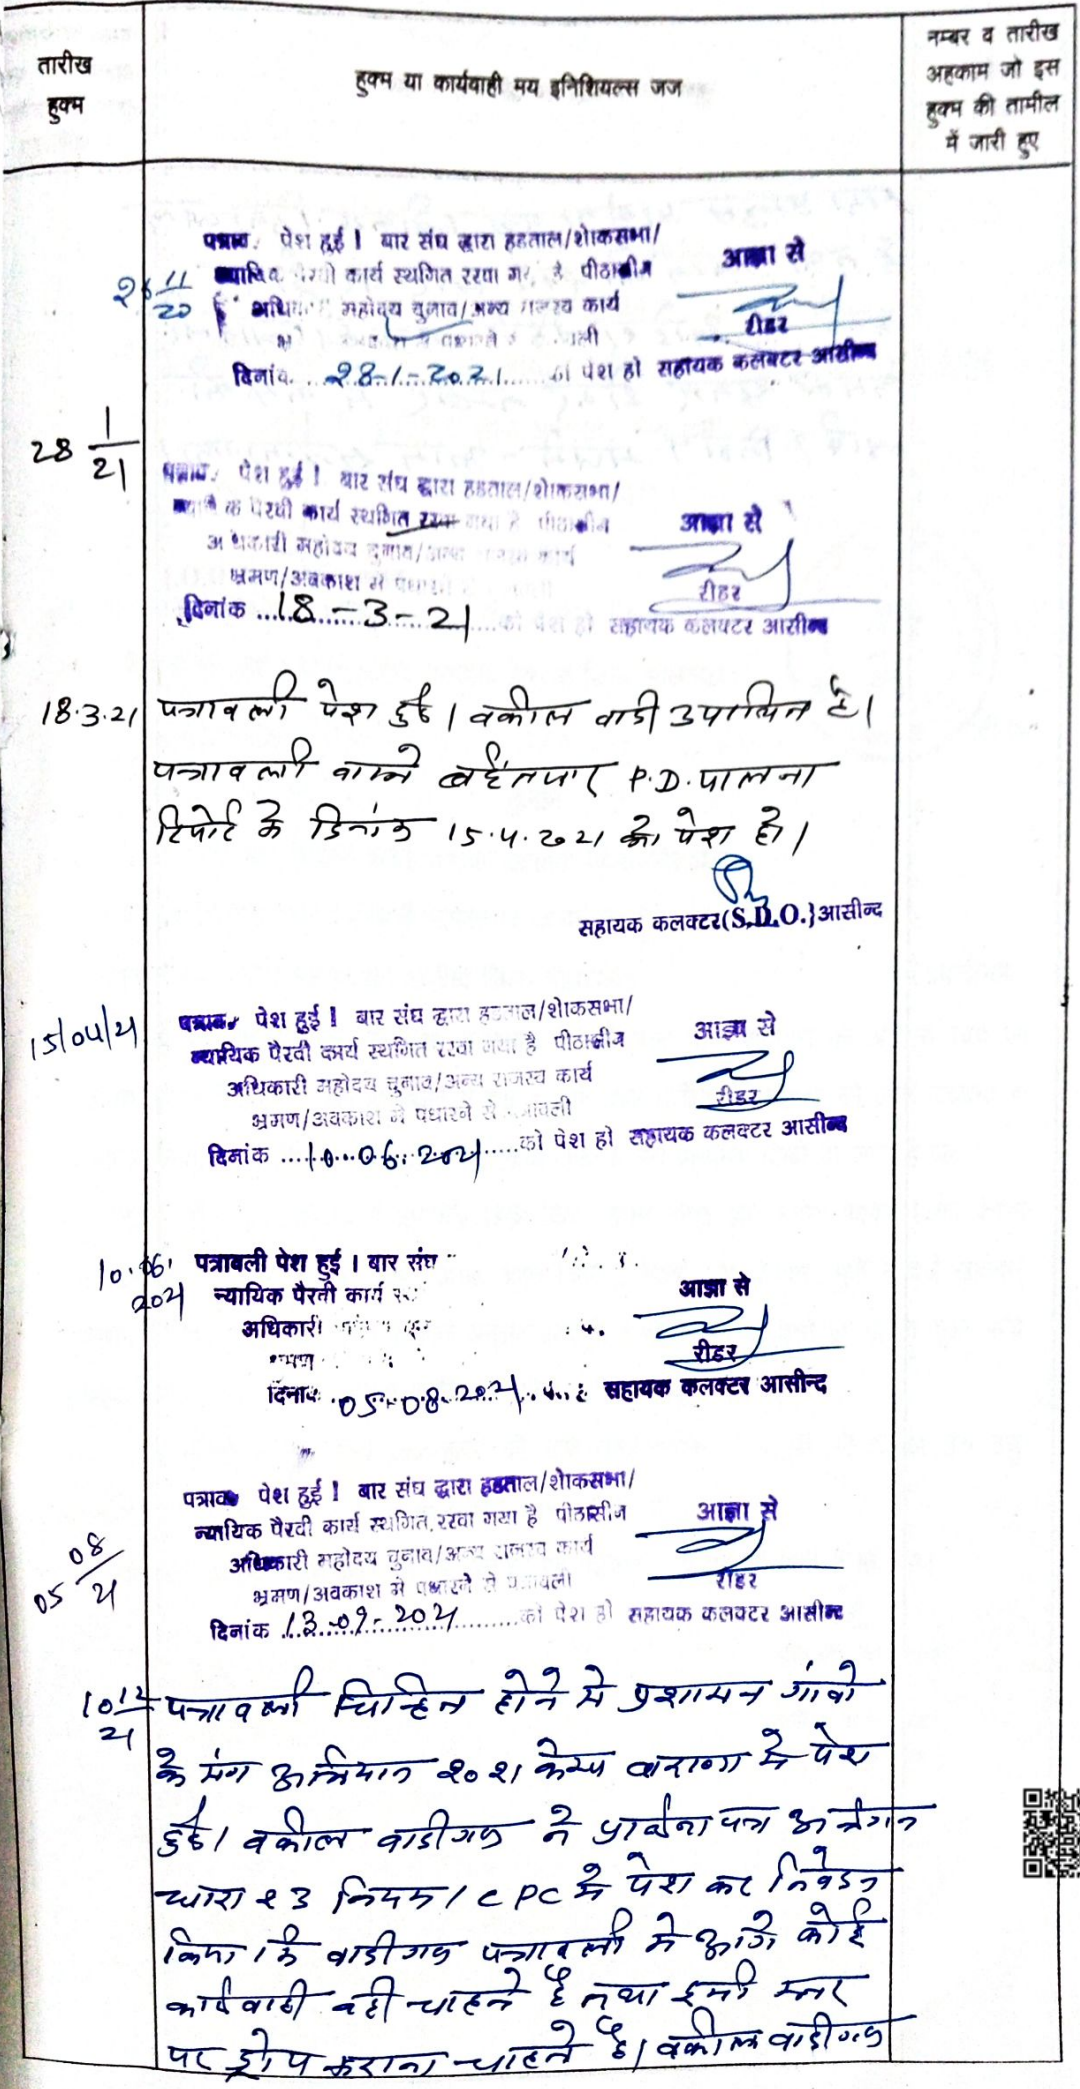 तारीख
हुक्म
हुक्म या कार्यवाही मय इनिशियल्स जज
नम्बर व तारीख
अहकाम जो इस
हुक्म की तामील
में जारी हुए
26 11/20
पत्राव. पेश हुई। बार संघ द्वारा हडताल/शोकसभा/
कार्य स्थगित रखा है पीठासीन
महोदय चुनाव/अन्य राजस्व कार्य
दिनांक 28-1-2021 को पेश हो
आज्ञा से
रीडर
सहायक कलक्टर आसीन्द
28 1/21
पत्राव. पेश हुई। बार संघ द्वारा हडताल/शोकसभा/
पैरवी कार्य स्थगित रखा गया है पीठासीन
अधिकारी महोदय चुनाव/अन्य कार्य
भ्रमण/अवकाश में
दिनांक 18-3-21 को पेश हो
आज्ञा से
रीडर
सहायक कलक्टर आसीन्द
18.3.21 पत्रावली पेश हुई। वकील वादी उपस्थित है।
पत्रावली वास्ते P.D. पालना
रिपोर्ट के दिनांक 15.4.2021 को पेश हो।
सहायक कलक्टर(S.D.O.)आसीन्द
15/04/21
पत्राव. पेश हुई। बार संघ द्वारा हडताल/शोकसभा/
न्यायिक पैरवी कार्य स्थगित रखा गया है पीठासीन
अधिकारी महोदय चुनाव/अन्य राजस्व कार्य
भ्रमण/अवकाश में पधारने से पत्रावली
दिनांक 10.06.2021 को पेश हो
आज्ञा से
रीडर
सहायक कलक्टर आसीन्द
10.06.2021
पत्रावली पेश हुई। बार संघ
न्यायिक पैरवी कार्य
अधिकारी
दिनांक 05-08-2021
आज्ञा से
रीडर
सहायक कलक्टर आसीन्द
05 08/21
पत्राव पेश हुई। बार संघ द्वारा हडताल/शोकसभा/
न्यायिक पैरवी कार्य स्थगित रखा गया है पीठासीन
अधिकारी महोदय चुनाव/अन्य राजस्व कार्य
भ्रमण/अवकाश में पधारने से पत्रावली
दिनांक 13-09-2021 को पेश हो
आज्ञा से
रीडर
सहायक कलक्टर आसीन्द
10 12/21 पत्रावली चिन्हित होने से प्रशासन गांवो
के संग अभियान 2021 केम्प में पेश
हुई। वकील वादीगण ने प्रार्थना पत्र अन्तर्गत
धारा 23 नियम 1 CPC में पेश कर निवेदन
किया कि वादीगण पत्रावली में आगे कोई
कार्यवाही नही चाहते है तथा इसी स्तर
पर ड्रोप कराना चाहते है। वकील वादीगण